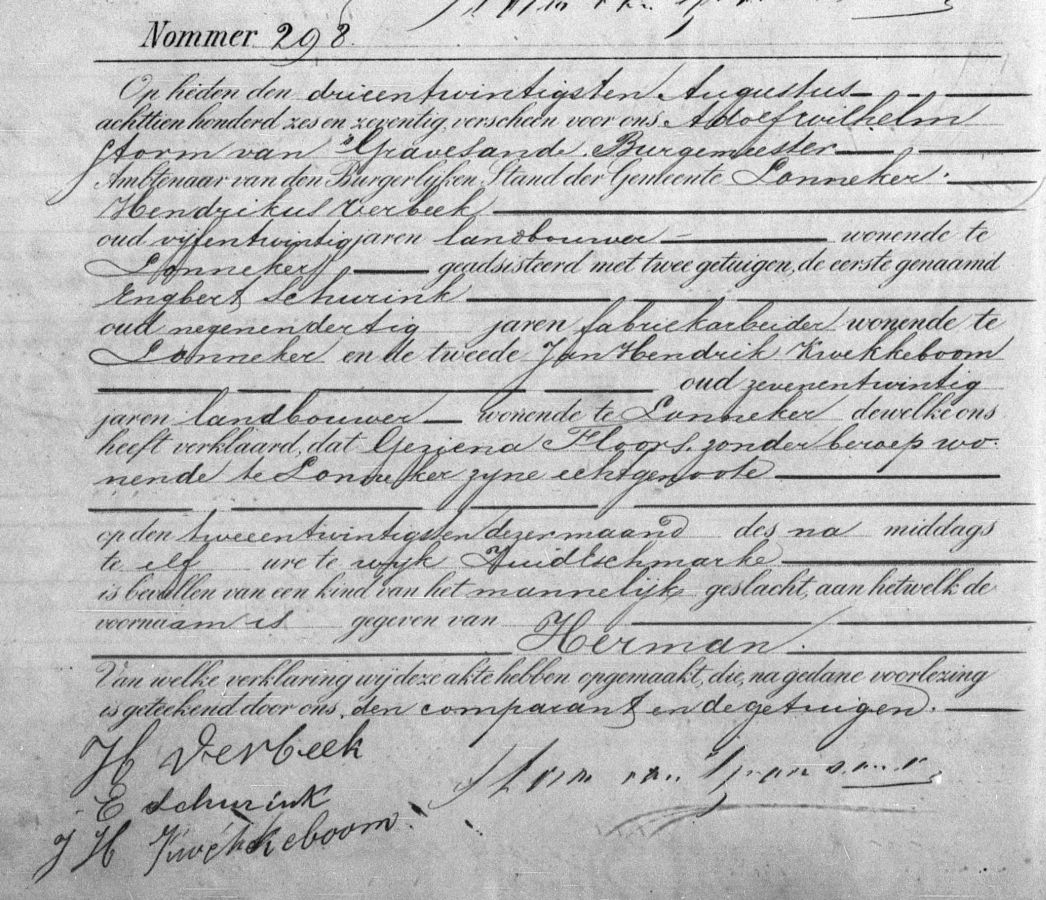 Nommer 298.
Op heden den drieentwintigsten Augustus
achttien honderd zes en zeventig, verscheen voor ons Adolf wilhelm
Storm van 's Gravesande. Burgemeester
Ambtenaar van den Burgerlijken Stand der Gemeente Lonneker.
Hendrikus Verbeek
oud vijfentwintig jaren landbouwer wonende te
Lonneker, geadsisteerd met twee getuigen, de eerste genaamd
Engbert Schurink
oud negenendertig jaren fabriekarbeider wonende te
Lonneker en de tweede Jan Hendrik Kwekkeboom
oud zevenentwintig
jaren landbouwer wonende te Lonneker dewelke ons
heeft verklaard, dat Geziena Floors, zonder beroep wo-
nende te Lonneker zijne echtgenoote
op den tweeentwintigsten dezer maand des na middags
te elf ure te wijk Zuid Eschmarke
is bevallen van een kind van het mannelijk geslacht, aan hetwelk de
voornaam is gegeven van
Herman.
Van welke verklaring wij deze akte hebben opgemaakt, die, na gedane voorlezing
is geteekend door ons, den comparant en de getuigen.
H Verbeek
Storm van 's Gravesande
E Schurink
J H Kwekkeboom.